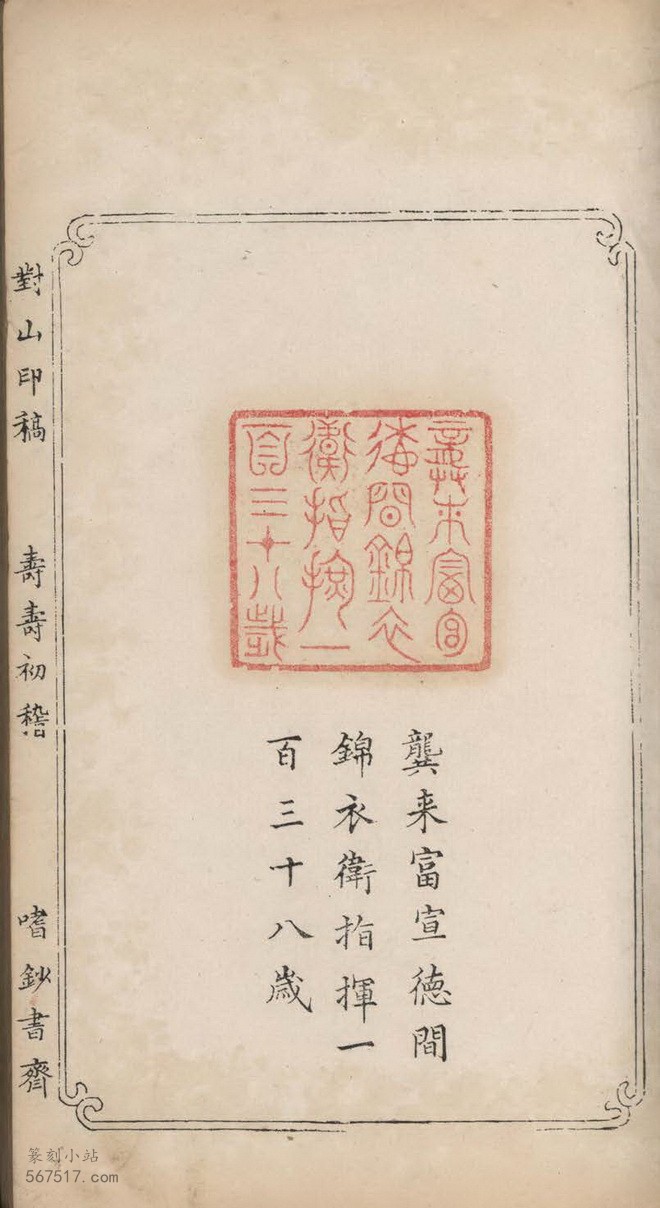 龔来富宣
德間錦衣
衛指揮一
百三十八歲
龔来富宣徳間
錦衣衛指揮一
百三十八歲
對山印稿
壽壽初稽
嗜鈔書齊
篆刻小站
567517.com